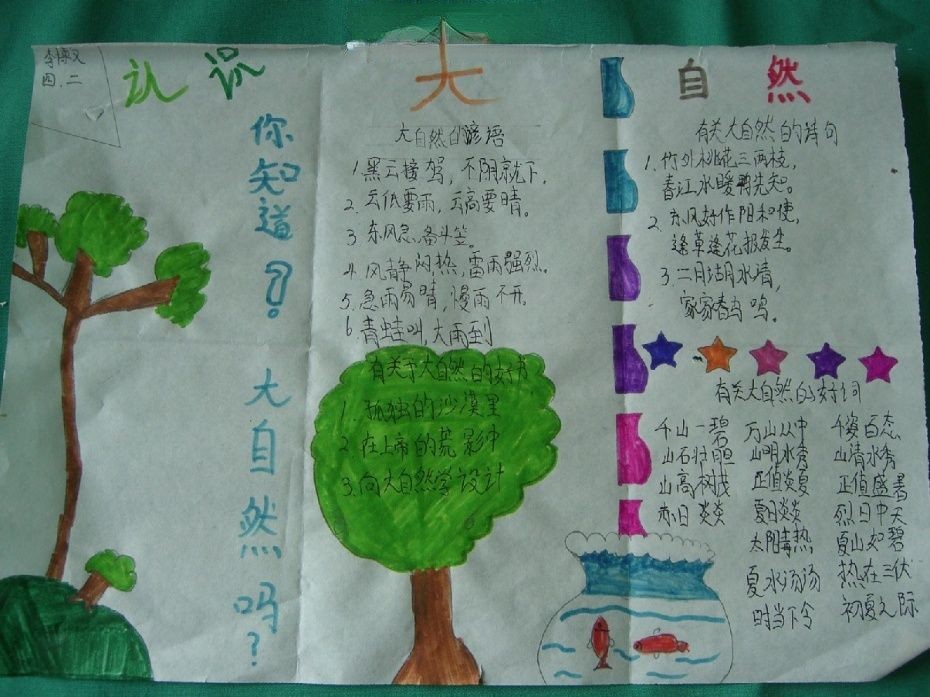 四.二
认识大自然
你知道?
大自然吗?
大自然的谚语
1.黑云接驾,不阴就下.
2.云低要雨,云高要晴。
3.东风急备斗笠。
4.风静闷热,雷雨强烈。
5.急雨易晴,慢雨不开。
6.青蛙叫,大雨到
有关于大自然的好书
1.孤独的沙漠里
2.在上帝的荒影中
3.向大自然学设计
有关大自然的诗句
1.竹外桃花三两枝,
春江水暖鸭先知。
2.东风好作阳和使,
逢草逢花报发生。
3.二月湖水清,
家家春鸟鸣。
有关大自然的好词
千山一碧 万山从中 千姿百态
山石壮胆 山明水秀 山清水秀
山高树茂 正值炎夏 正值盛暑
赤日炎炎 夏日炎炎 烈日中天
太阳毒热 夏山如碧
夏水汤汤 热在三伏
时当下令 初夏之际